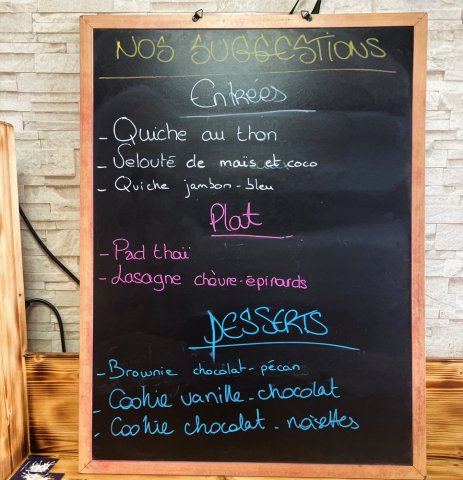 NOS SUGGESTIONS
Entrées
- Quiche au thon
- Velouté de maïs et coco
- Quiche jambon-bleu
Plat
- Pad thaï
- Lasagne chèvre-épinards
DESSERTS
- Brownie chocolat-pécan
- Cookie vanille-chocolat
- Cookie chocolat-noisettes